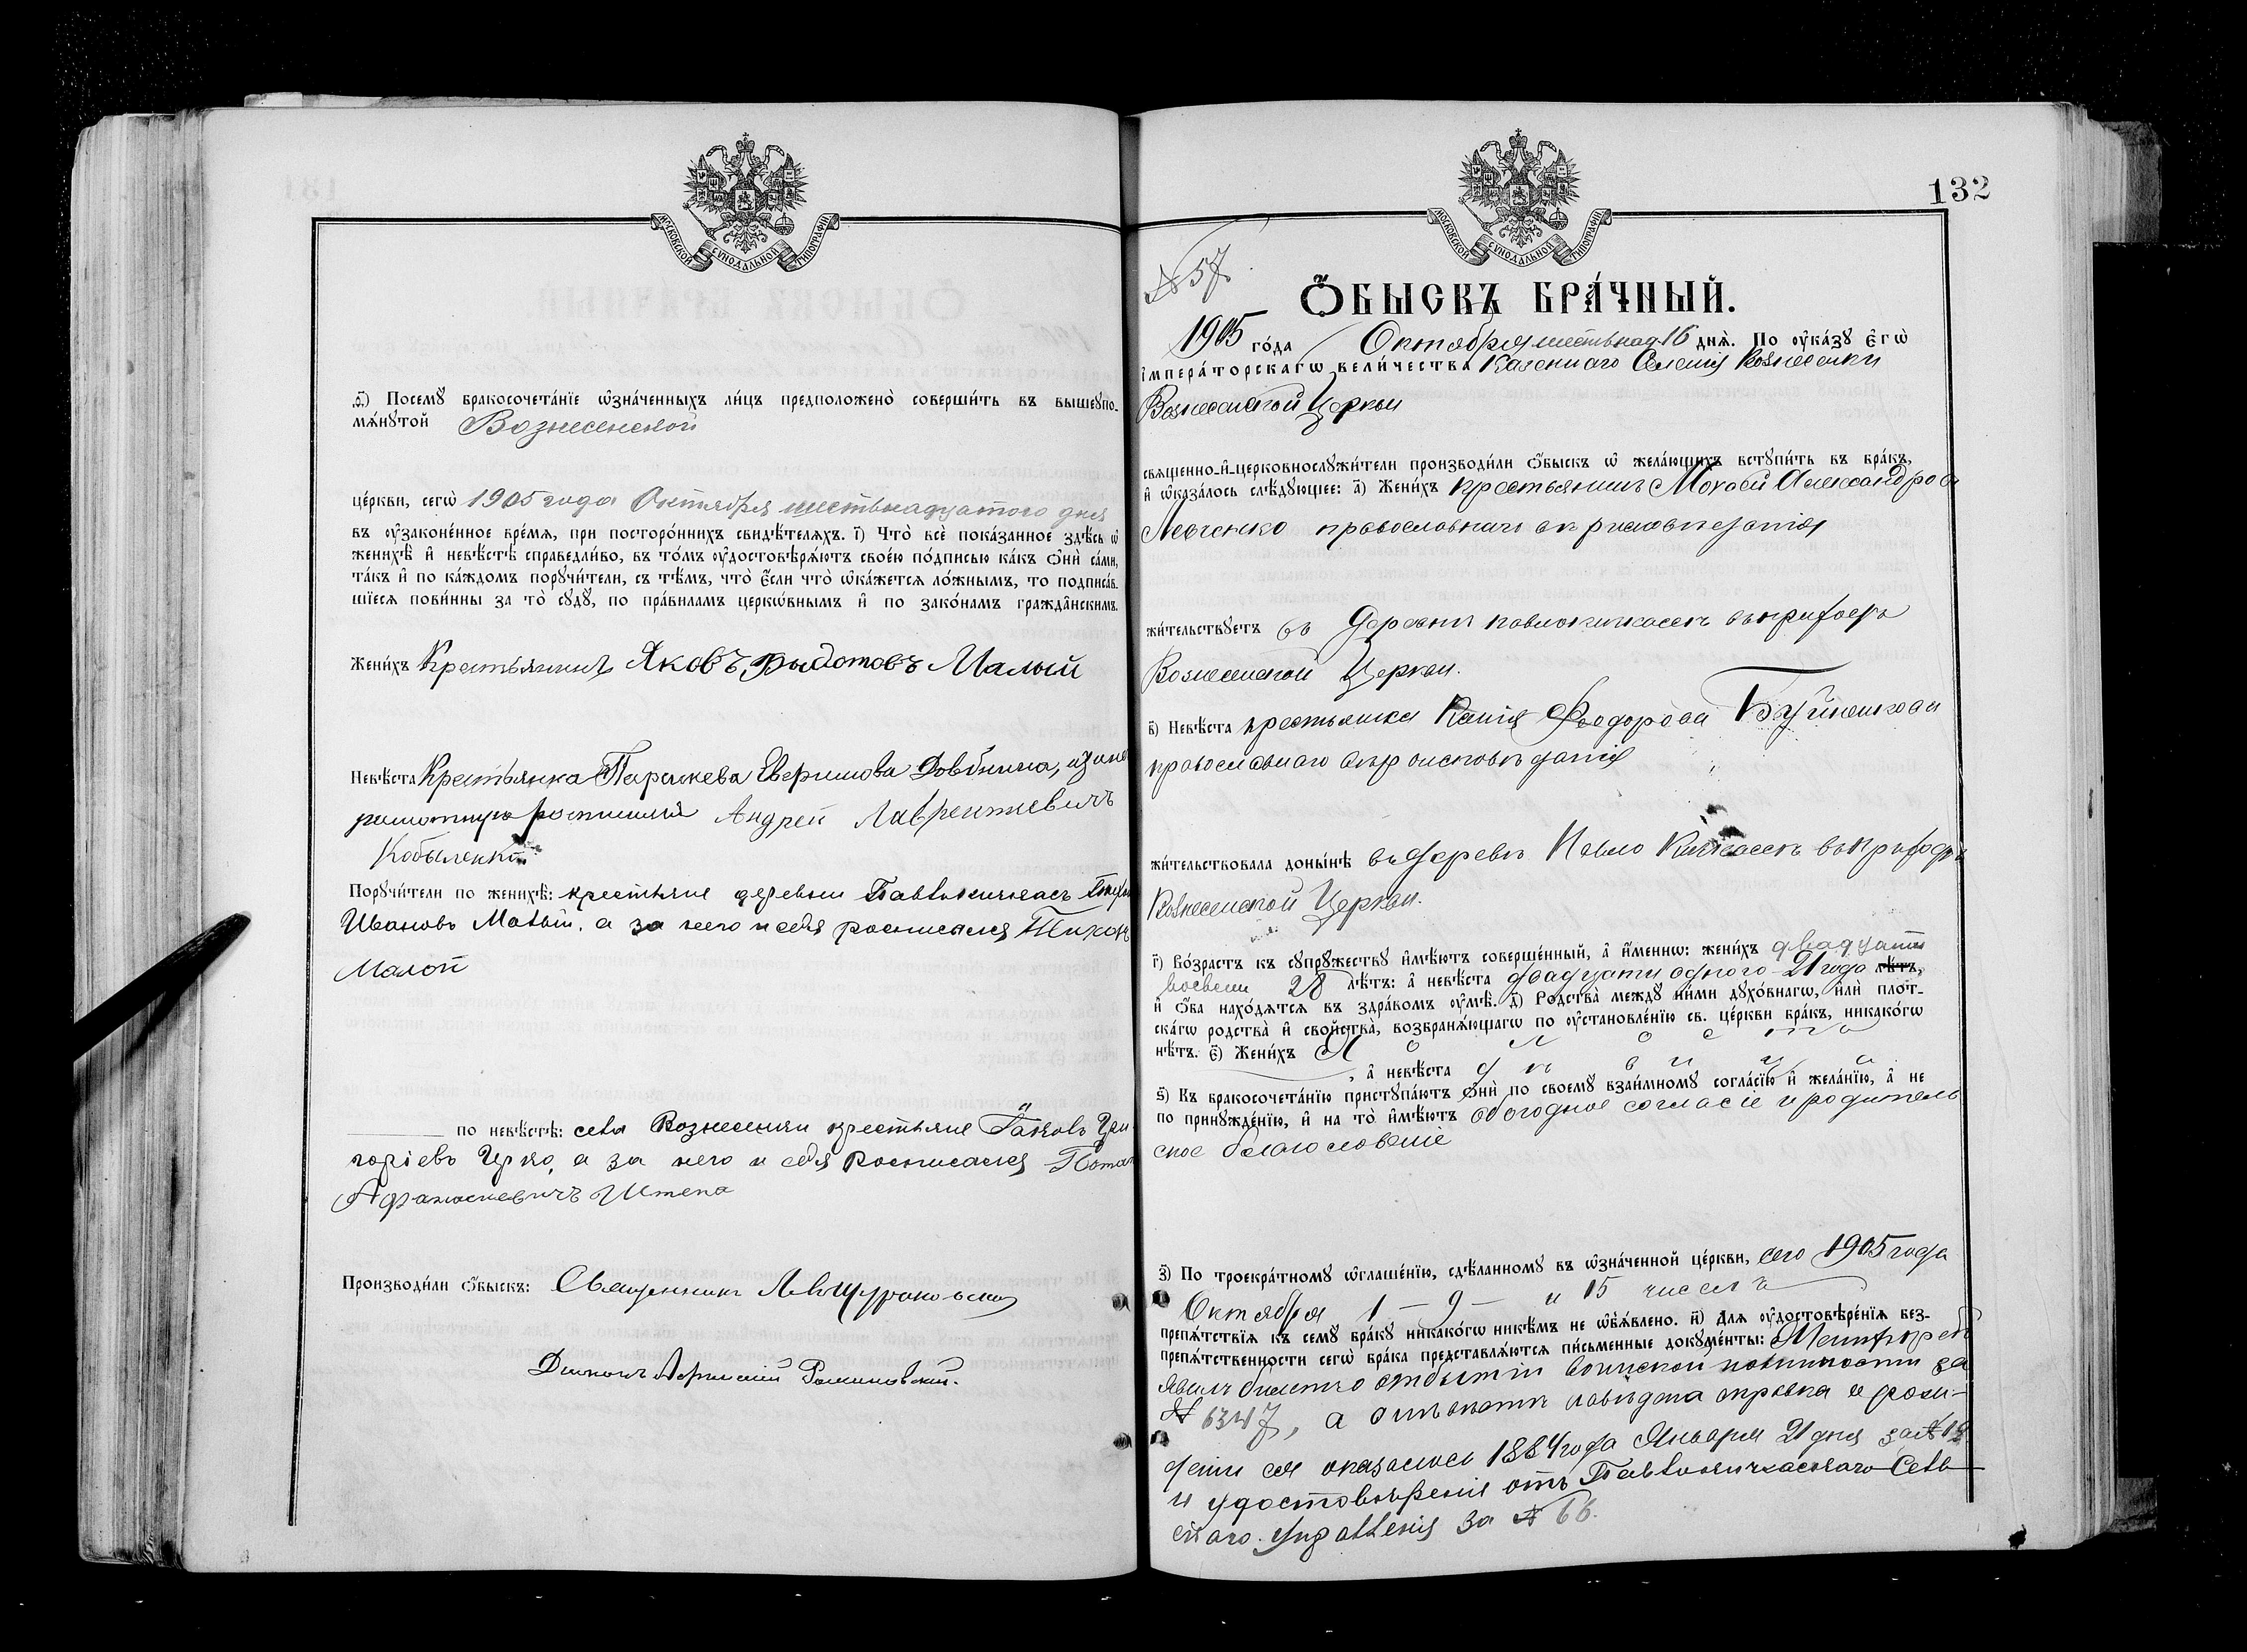 МОСКОВСКОЙ СѴНОДАЛЬНОЙ ТИПОГРАФІИ
ѳ҃) Посемꙋ̀ бракосочета́нїе ѡ҆зна́ченныхъ ли́цъ предположенò соверши́ть въ вышеꙋпо-
мѧ́нꙋтой Вознесенской
це́ркви, сегѡ̀ 1905 года Октября шестьнадцатого дня
въ ᲂу҆законе́нное вре́мѧ, при посторо́ннихъ свидѣ́телѧхъ. і҃) Что̀ всѐ пока́занное здѣ́сь ѡ҆
женихѣ̀ и҆ невѣ́стѣ справедли́во, въ то́мъ ᲂу҆достовѣрѧ́ютъ свое́ю по́дписью ка́къ ѻ҆нѝ са́ми,
та́къ и҆ по ка́ждомъ порꙋчи́тели, съ тѣ́мъ, что̀ є҆́сли что̀ ѡ҆ка́жетсѧ ло́жнымъ, то подписа́в-
шїесѧ пови́нны за то̀ сꙋдꙋ̀, по пра́виламъ церкѡ́внымъ и҆ по зако́намъ гражда̑нскимъ.
Жени́хъ Крестьянинъ Яковъ Малый
Невѣ́ста Крестьянка Параскева Довбнина,
Андрей Лаврентиевичъ
Порꙋчи́тели по женихѣ̀: крестьяне деревни Павлокичкасъ
Ивановъ Малый, а за него и себя росписался Тихонъ
Малой
по невѣ́стѣ: села Вознесенки крестьяне Яковъ Гри
горіевъ а за него и себя Росписался
Афанасиевичъ Штепа
Производи́ли ѻ҆́быскъ: Священникъ
Діаконъ
132
МОСКОВСКОЙ СѴНОДАЛЬНОЙ ТИПОГРАФІИ
№ 57
Ѻ҆БЫСКЪ БРА́ЧНЫЙ.
1905 го́да Октября шестьнад. 16 днѧ̀. По ᲂу҆ка́зꙋ Є҆гѡ̀
і҆мпера́торскагѡ вели́чества казеннаго Селенія Вознесенки
Вознесенской Церкви
свѧщенно-и҆-церковнослꙋжи́тели производи́ли ѻ҆́быскъ ѡ҆ жела́ющихъ встꙋпи́ть въ бра́къ,
и҆ ѡ҆каза́лось слѣ́дꙋющее: а҃) Жени́хъ крестьянинъ Мокей Александровъ
Левченко православнаго вѣроисповѣданія
жи́тельствꙋетъ въ деревни павлокичкасѣ въ приходѣ
Вознесенской Церкви.
в҃) Невѣ́ста крестьянка Ксенія Феодорова
православнаго вѣроисповѣданія
жи́тельствовала доны́нѣ въ деревѣ Павло Кичкасѣ въ приходѣ
Вознесенской Церкви.
г҃) Во́зрастъ къ сꙋпрꙋ́жествꙋ и҆мѣ́ютъ соверше́нный, а҆ и҆́меннѡ: жени́хъ двадцати
восьми 28 лѣ́тъ: а҆ невѣ́ста двадцати одного - 21 года лѣ́тъ,
и҆ ѻ҆́ба нахо́дѧтсѧ въ здра́вомъ ᲂу҆мѣ̀. д҃) Родства̀ междꙋ̀ ни́ми дꙋхо́внагѡ, и҆лѝ пло́т-
скагѡ родства̀ и҆ сво́йства, возбранѧ́ющагѡ по ᲂу҆становле́нїю св. це́ркви бра́къ, никако́гѡ
нѣ́тъ. є҃) Жени́хъ холостъ
, а҆ невѣ́ста дѣвица
ѕ҃) Къ бракосочета́нїю пристꙋпа́ютъ ѻ҆нѝ по своемꙋ̀ взаи́мномꙋ согла́сїю и҆ жела́нїю, а҆ не
по принꙋжде́нїю, и҆ на то̀ и҆мѣ́ютъ обоюдное согласіе и родитель
ское благословеніе
з҃) По троекра́тномꙋ ѡ҆глаше́нїю, сдѣ́ланномꙋ въ ѡ҆зна́ченной це́ркви, сего 1905 года
Октября 1 - 9 - и 15 чиселъ
препѧ́тствїѧ къ семꙋ̀ бра́кꙋ никако́гѡ никѣ́мъ не ѡ҆б̾ѧ́влено. и҃) Длѧ ᲂу҆достовѣре́нїѧ без-
препѧ́тственности сегѡ̀ бра́ка представлѧ́ютсѧ пи́сьменные докꙋме́нты: Женихъ предъ
явилъ билетъ о отбытіи воинской повинности за
№ 6347, а о невѣстѣ наведена справка и рожде-
деніи ея оказалось 1884 года Января 21 дня за №
и удостовѣреніе отъ Павлокичкаскаго Сель
скаго Управленія за № 66.